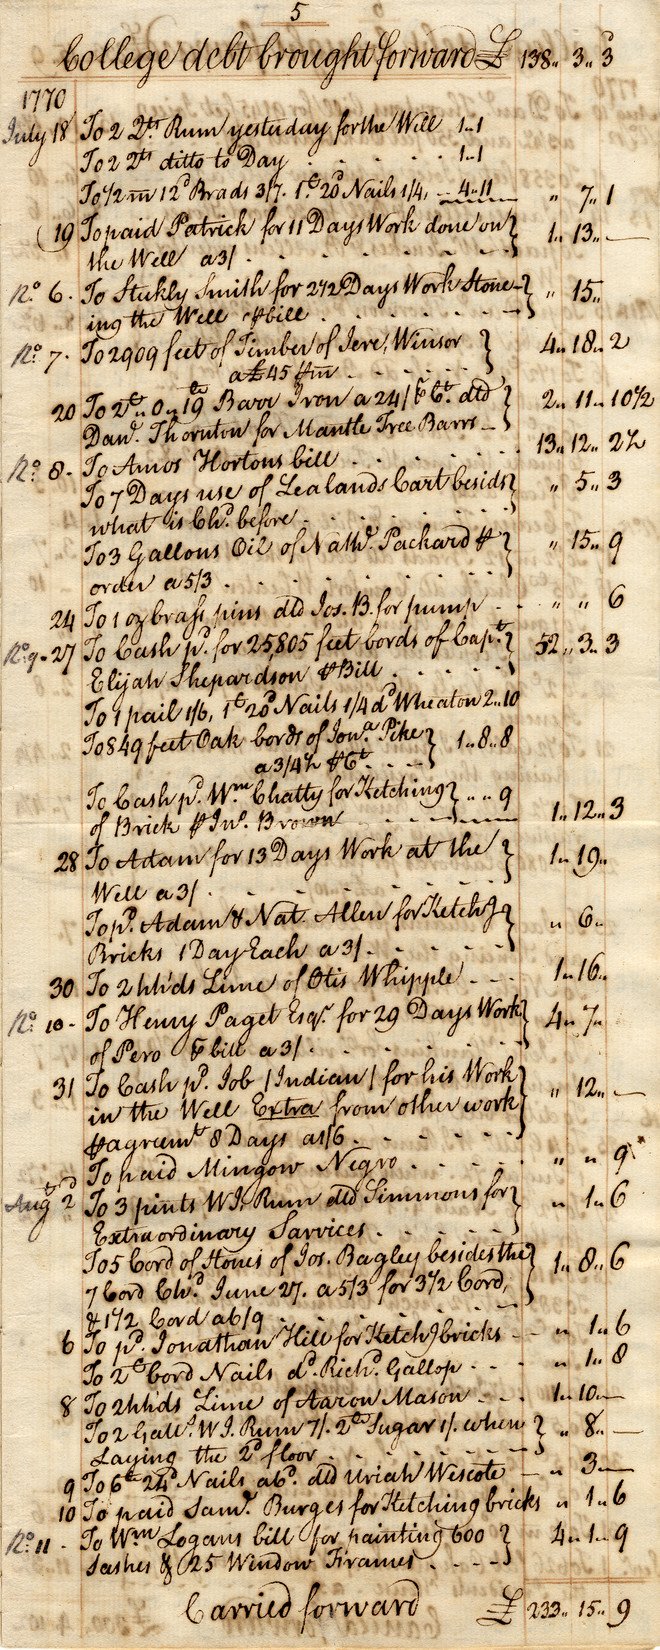 5
College debt brought forward £ 138.. 3.. 3
1770
July 18 To 2 Qts Rum yesterday for the Well 1..1
To 2 Qts ditto to Day . . . . . 1..1
To ½ m 12d Brads 3/7. 1 lb 20d Nails 1/4, — 4..11 " 7.. 1
19 To paid Patrick for 11 Days Work done on 1.. 13.. —
the Well a 3/ . . . . . .
No. 6. To Stukly Smith for 2½ Days Work Stone- " 15..
ing the Well ⅌ bill . . . . . .
No. 7. To 2909 feet of Timber of Jere, Winsor 4.. 18.. 2
a £45 ⅌ m . . . .
20 To 2ct.. 0.. 19 lb Barr Iron a 24/ ⅌ Ct. dld 2.. 11.. 10½
Danl. Thornton for Mantle Tree Barrs —
No. 8. To Amos Hortons bill . . . . . 13.. 12.. 2½
To 7 Days use of Lealands Cart besids " 5.. 3
what is Chd. before . . . . . .
To 3 Gallons Oil of Nathl. Packard ⅌ " 15.. 9
order a 5/3 . . . . . . .
24 To 1 oz brass pins dld Jos. B. for pump . . " " 6
No. 9 - 27 To Cash pd. for 25805 feet bords of Capt. 52.. 3.. 3
Elijah Shepardson ⅌ Bill . . . .
To 1 pail 1/6, 1 lb 20d Nails 1/4 dd Wheaton 2..10
To 849 feet Oak bords of Jona. Pike 1..8..8
a 3/4½ ⅌ Ct. . . .
To Cash pd. Wm. Chatty for Ketching " .. 9
of Brick ⅌ Jno. Brown 1.. 12.. 3
28 To Adam for 13 Days Work at the 1.. 19..
Well a 3/ . . . . . . .
To pd. Adam & Nat. Allen for Ketchg " 6..
Bricks 1 Day Each a 3/ . . . . .
30 To 2 hhds Lime of Otis Whipple . . . 1.. 16..
No. 10 - To Henry Paget Esqr. for 29 Days Work 4.. 7..
of Pero ⅌ bill a 3/ . . . . . .
31 To Cash pd. Job /Indian/ for his Work " 12.. —
in the Well Extra from other work
⅌ agreemt 8 Days a 1/6 . . . . .
To paid Mingow Negro . . . . . " " 9
Augt 2d To 3 pints W I, Rum dld Simmons for " 1.. 6
Extraordinary Sarvices . . . . .
To 5 Cord of Stones of Jos. Bagley besides the 1.. 8.. 6
7 Cord Chd. June 27. a 5/3 for 3½ Cord,
& 1½ Cord a 6/9 . . . . . .
6 To pd. Jonathan Hill for Ketchg bricks — " 1.. 6
To 2 lb Cord Nails dd. Richd. Gallop . . . " 1.. 8
8 To 2 hhds Lime of Aaron Mason . . . 1.. 10.. —
To 2 Galls. W I. Rum 7/. 2 lb Sugar 1/. when " 8.. —
Laying the 2d floor . . . . .
9 To 6 lb 24d Nails a 6d. dld Uriah Wescote — " 3 —
10 To paid Saml. Burges for Ketching bricks " 1.. 6
No. 11 - To Wm Logans bill for painting 600 4.. 1.. 9
Sashes & 25 Window Frames . . . .
Carried forward £ 233.. 15.. 9